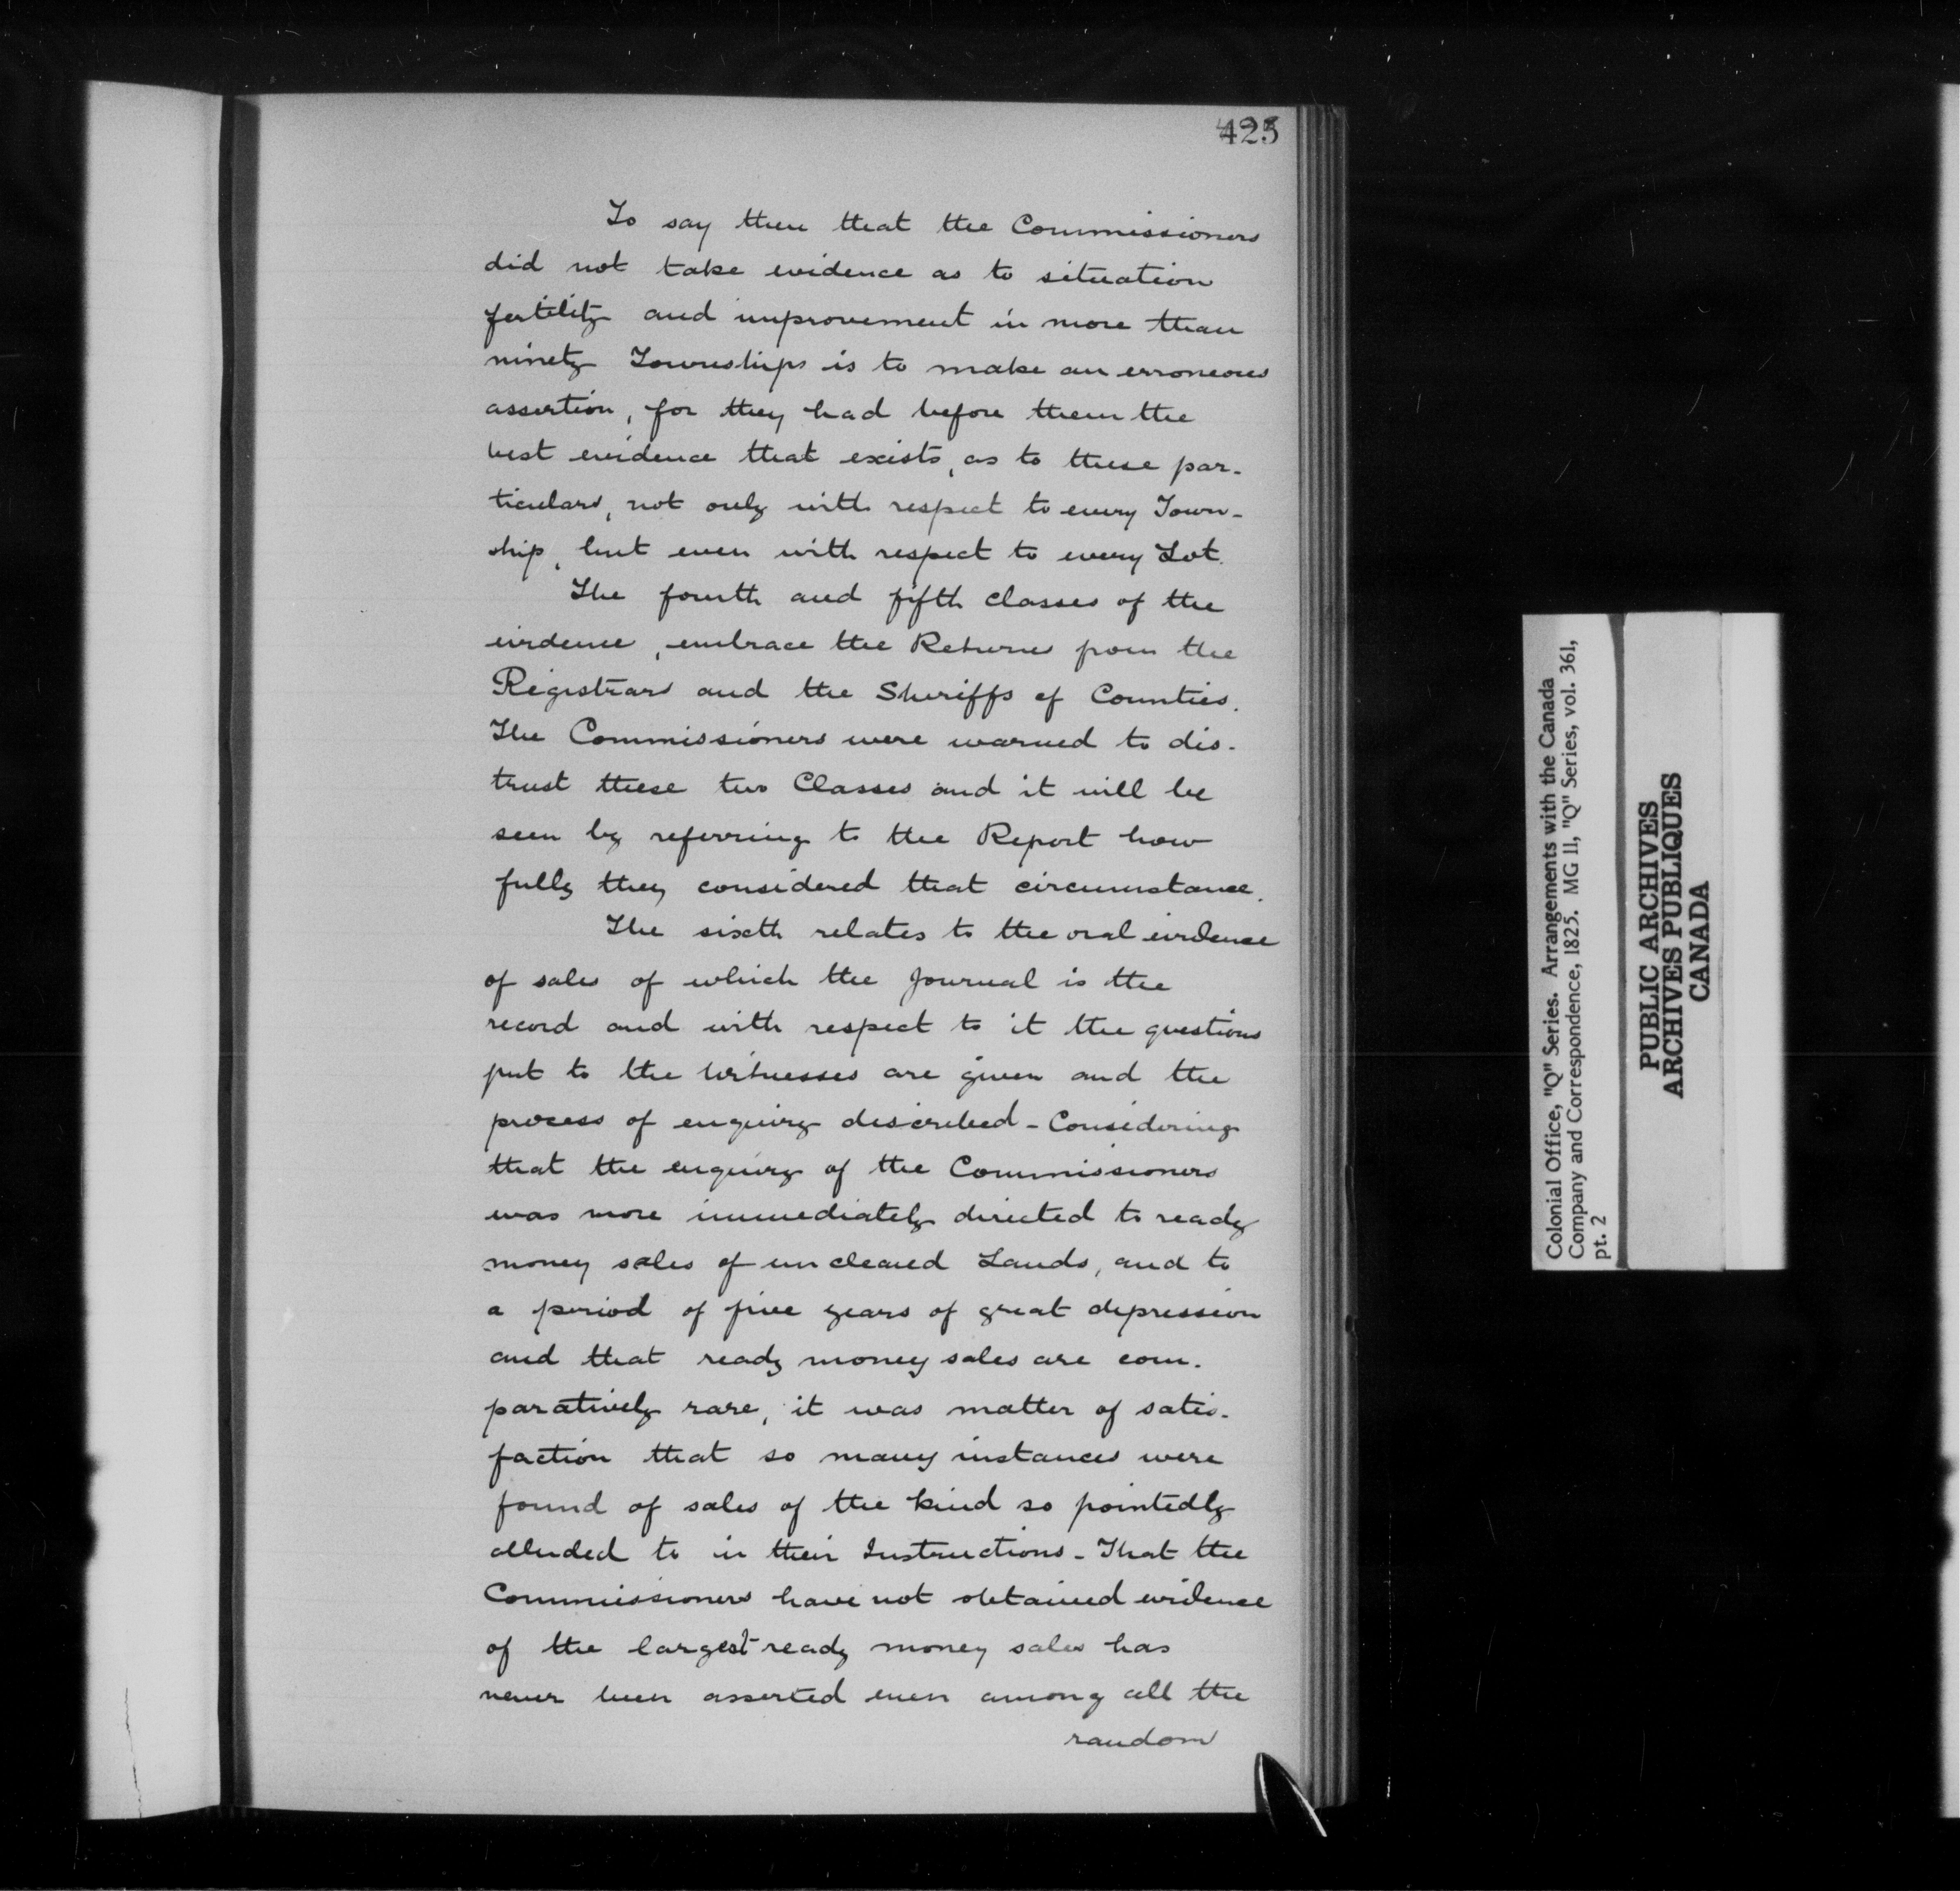 425
To say then that the Commissioners
did not take evidence as to situation
fertility and improvement in more than
ninety Townships is to make an erroneous
assertion, for they had before them the
best evidence that exists, as to these par-
ticulars, not only with respect to every Town-
ship, but even with respect to every Lot.
The fourth and fifth classes of the
evidence, embrace the Returns from the
Registrars and the Sheriffs of Counties.
The Commissioners were warned to dis-
trust these two Classes and it will be
seen by referring to the Report how
fully they considered that circumstance.
The sixth relates to the oral evidence
of sales of which the Journal is the
record and with respect to it the questions
put to the Witnesses are given and the
process of enquiry described - Considering
that the enquiry of the Commissioners
was more immediately directed to ready
money sales of uncleared Lands, and to
a period of five years of great depression
and that ready money sales are com-
paratively rare, it was matter of satis-
faction that so many instances were
found of sales of the kind so pointedly
alluded to in their Instructions - That the
Commissioners have not obtained evidence
of the largest ready money sales has
never been asserted even among all the
random
Colonial Office, "Q" Series. Arrangements with the Canada
Company and Correspondence, 1825. MG 11, "Q" Series, vol. 361,
pt. 2
PUBLIC ARCHIVES
ARCHIVES PUBLIQUES
CANADA